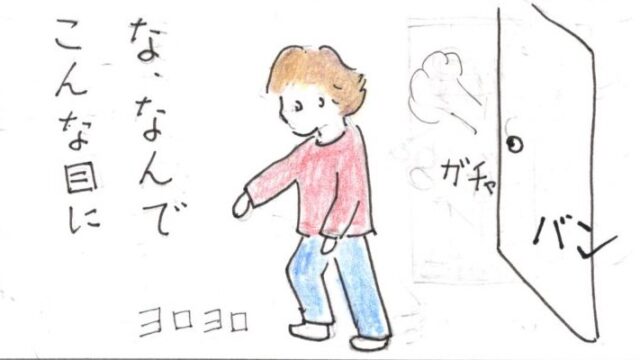 バン
ガチャ
な、なんで
こんな目に
ヨロヨロ